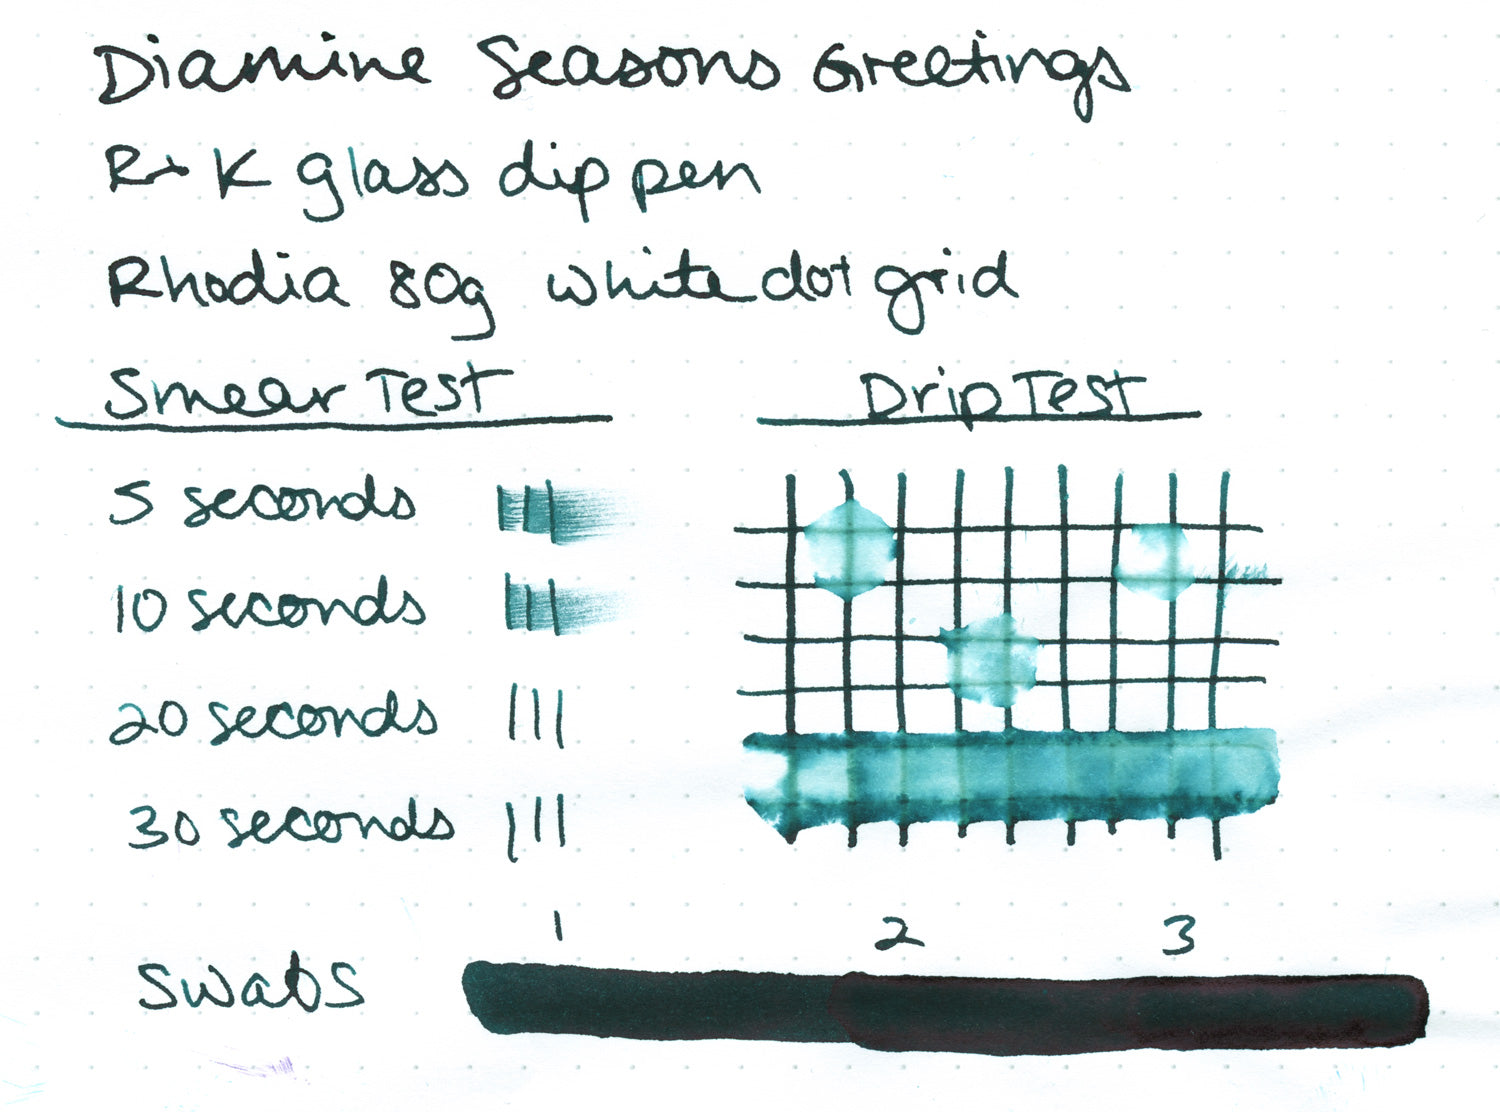 Diamine Seasons Greetings
R+K glass dip pen
Rhodia 80g white dot grid
Smear Test
Drip Test
5 seconds
10 seconds
20 seconds
30 seconds
1 2 3
Swabs